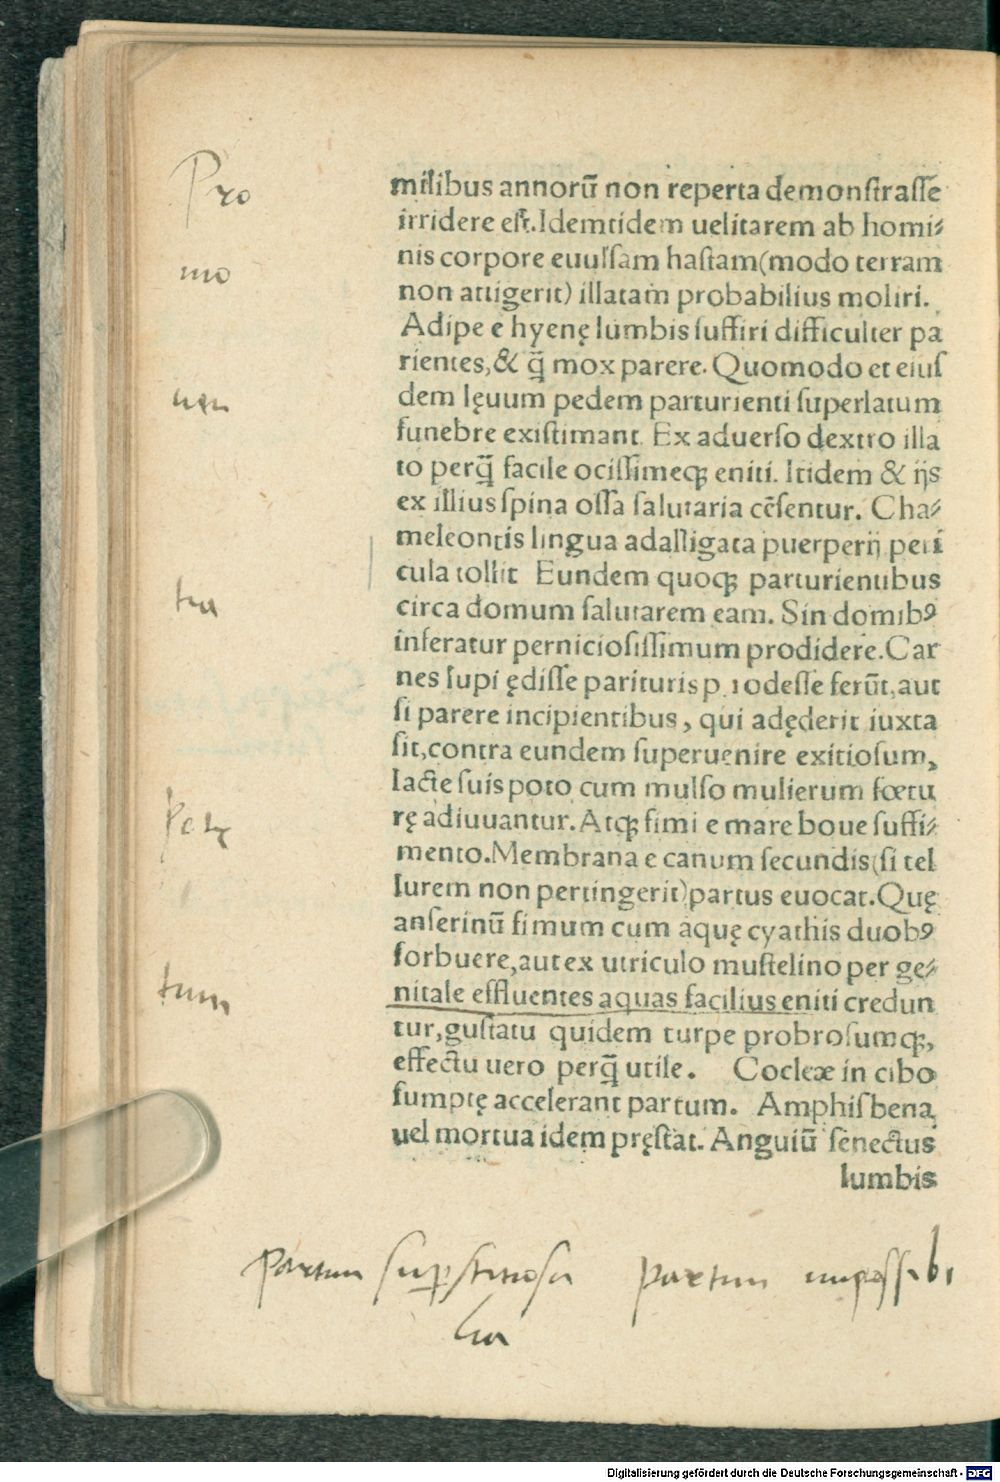 Pro
mo
uen
tra
Petę
tum
milibus annorū non reperta demonſtraſſe
irridere eſt. Idemtidem uelitarem ab homi⸗
nis corpore euulſam haſtam(modo terram
non attigerit) illatam probabilius moliri.
Adipe e hyenę lumbis ſuffiri difficulter pa
rientes, & q̄ mox parere. Quomodo et eiuſ
dem lęuum pedem parturienti ſuperlatum
funebre exiſtimant. Ex aduerſo dextro illa
to perq̄ facile ociſſimeqꝫ eniti. Itidem & ijs
ex illius ſpina oſſa ſalutaria cēſentur. Cha⸗
meleontis lingua adalligata puerperij peri
cula tollit Eundem quoqꝫ parturientibus
circa domum ſalutarem eam. Sin domibꝰ
inferatur pernicioſiſſimum prodidere. Car
nes lupi ędiſſe parituris prodeſſe ferūt, aut
ſi parere incipientibus, qui adęderit iuxta
ſit, contra eundem ſuperuenire exitioſum,
lacte ſuis poto cum mulſo mulierum fœtu
rę adiuuantur. Atqꝫ fimi e mare boue ſuffi⸗
mento. Membrana e canum ſecundis(ſi tel
lurem non pertingerit)partus euocat. Quę
anſerinū fimum cum aquę cyathis duobꝰ
ſorbuere, aut ex utriculo muſtelino per ge⸗
nitale effluentes aquas facilius eniti credun
tur, guſtatu quidem turpe probroſumqꝫ,
effectu uero perq̄ utile. Cocleæ in cibo
ſumptę accelerant partum. Amphiſbena
uel mortua idem pręſtat. Anguiū ſenectus
lumbis
partum ſuperſtitioſa partum impoſſibi
lia
Digitalisierung gefördert durch die Deutsche Forschungsgemeinschaft - DFG